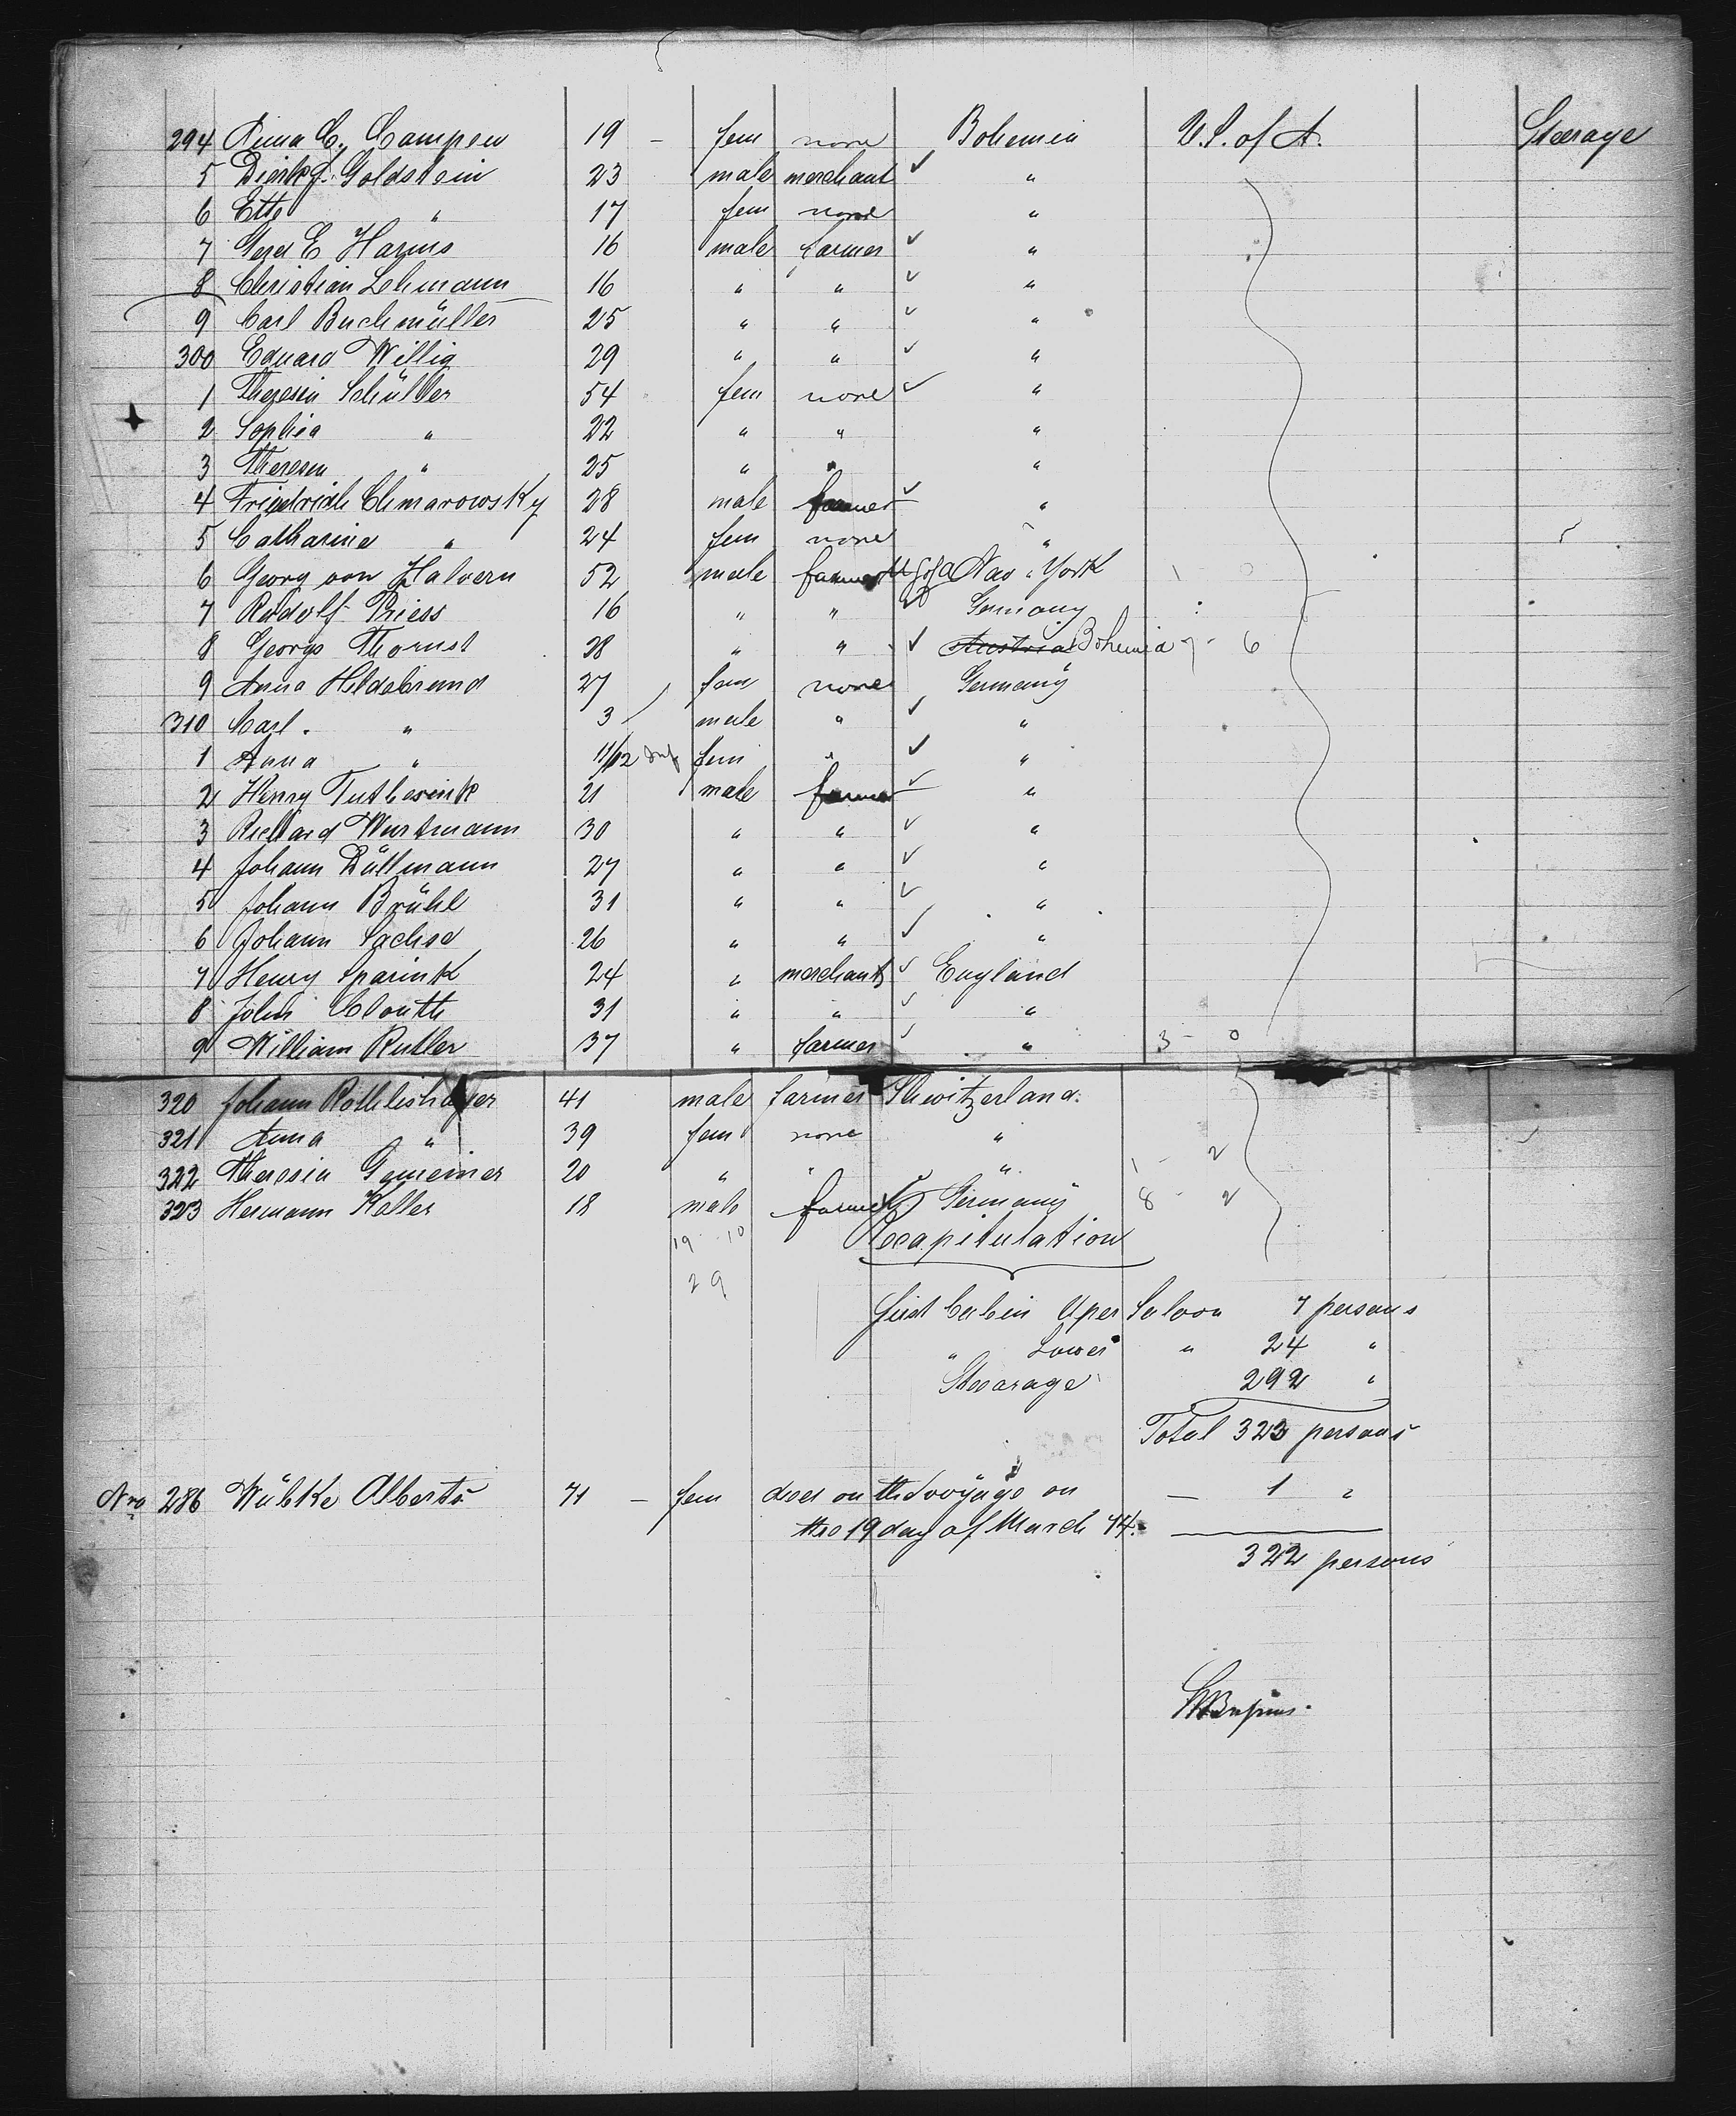 294 Anna C. Campen 19 – fem none Bohemia U.S. of A. Steerage
5 Dierk J. Goldstein 23 male merchant ✓ "
6 Etta " 17 fem none "
7 Gerd E Harms 16 male farmer ✓ "
8 Christian Lehmann 16 " " ✓ "
9 Carl Buchmüller 25 " " ✓ "
300 Eduard Willig 29 " " ✓ "
1 Theresia Schüller 54 fem none ✓ "
2 Sophia " 22 " " "
3 Theresia " 25 " " "
4 Friedrich Chmarowsky 28 male farmer ✓ "
5 Catharina " 24 fem none "
6 Georg von Halvern 52 male farmer New-York 1 - 0
7 Rudolf Priess 16 " " Germany
8 Georgs Thornst 28 " " ✓ Austria Bohemia 7 - 6
9 Anna Hildebrand 27 fem none Germany
310 Carl " 3 male " ✓ "
1 Anna " 11/12 Inf fem " ✓ "
2 Henry Tuthesink 21 male farmer ✓ "
3 Richard Wurtmann 30 " " ✓ "
4 Johann Dültmann 27 " " ✓ "
5 Johann Brühl 31 " " ✓ "
6 Johann Sachse 26 " " ✓ "
7 Henry Sparink 24 " merchant ✓ England
8 John Clouth 31 " " ✓ "
9 William Rutler 37 " farmer ✓ " 3 - 0
320 Johann 41 male farmer Shwitzerland.
321 Anna " 39 fem none "
322 Theresia Gemeiner 20 " " " 1 - 2
323 Hermann Koller 18 male farmer Germany 8 - 2
19 - 10 Recapitulation
29
first Cabin Uper Saloon 7 persons
" Lower " 24 "
Steearage 292 "
Total 323 persons
Nro 286 Wübke Alberts 71 – fem died on the voyage on – 1 "
the 19 day of March 74.
322 persons